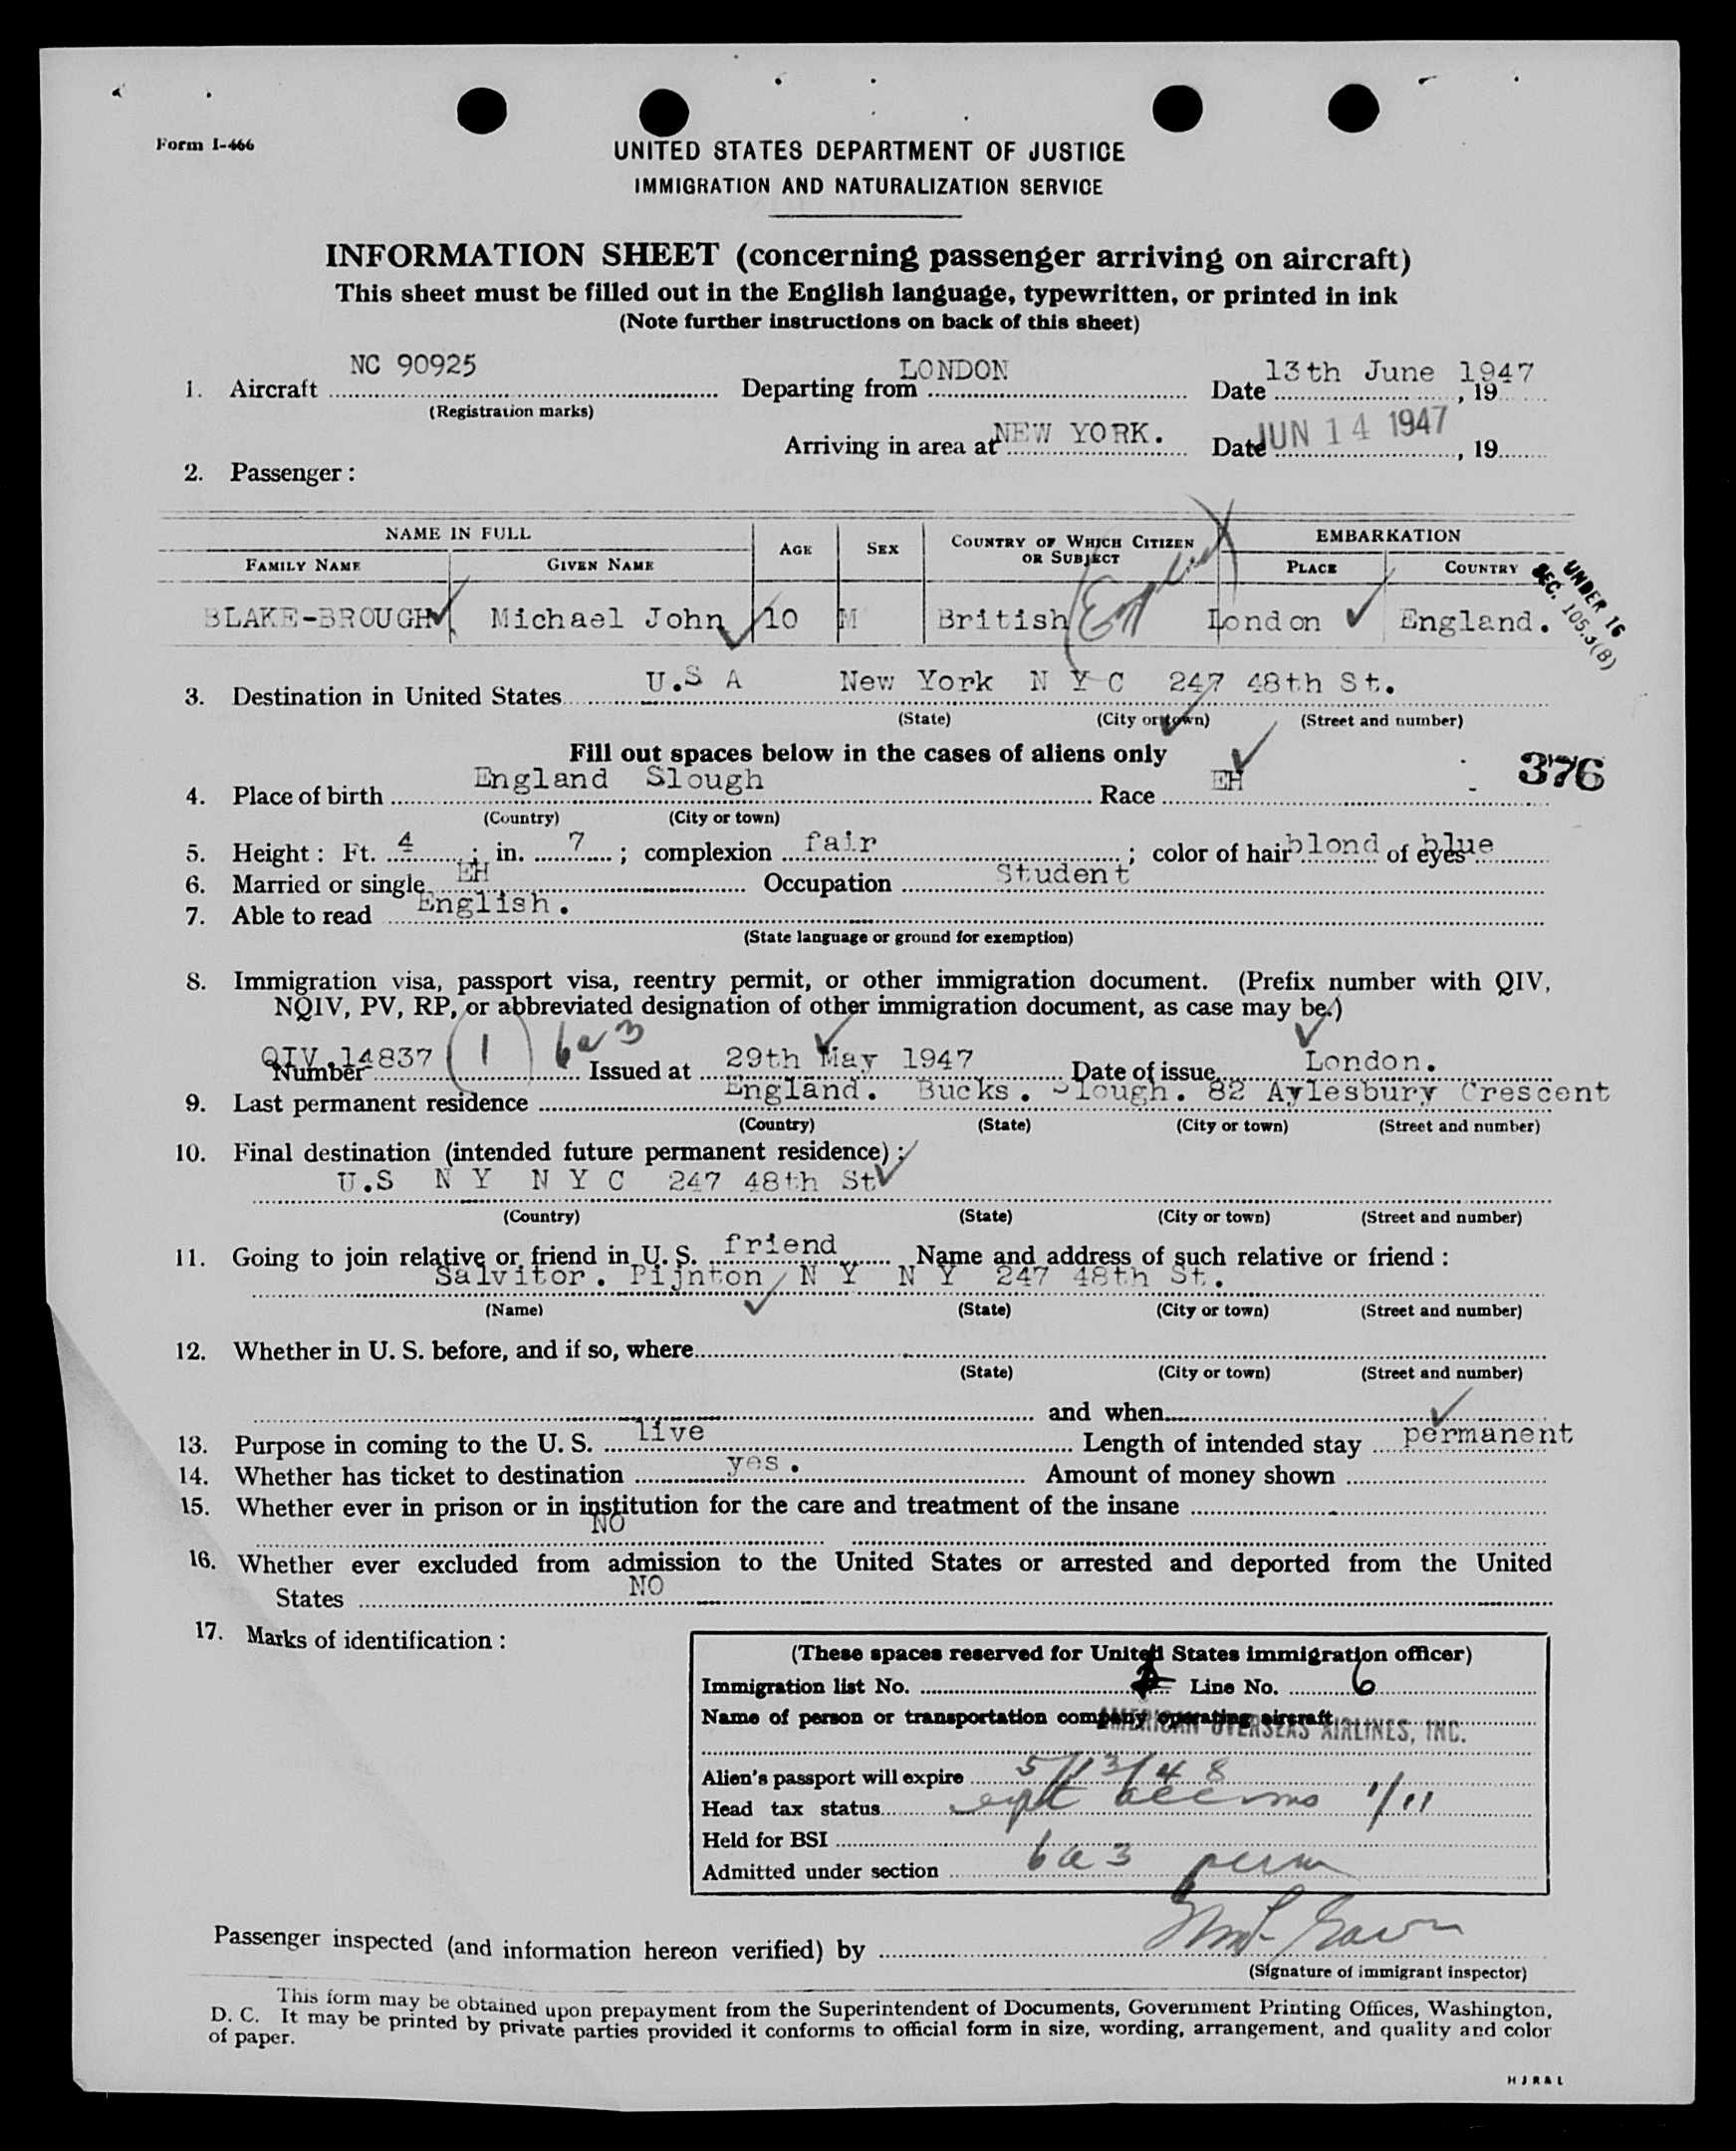 Form I-466
UNITED STATES DEPARTMENT OF JUSTICE
IMMIGRATION AND NATURALIZATION SERVICE
INFORMATION SHEET (concerning passenger arriving on aircraft)
This sheet must be filled out in the English language, typewritten, or printed in ink
(Note further instructions on back of this sheet)
1. Aircraft NC 90925 Departing from LONDON Date 13th June 1947, 19
(Registration marks)
Arriving in area at NEW YORK. Date JUN 14 1947, 19
2. Passenger :
NAME IN FULL AGE SEX COUNTRY OF WHICH CITIZEN OR SUBJECT EMBARKATION
FAMILY NAME GIVEN NAME PLACE COUNTRY
BLAKE-BROUGH Michael John 10 M British (England) London England.
UNDER 16
SEC. 105.3(B)
3. Destination in United States U.S A New York N Y C 247 48th St.
(State) (City or town) (Street and number)
Fill out spaces below in the cases of aliens only
376
4. Place of birth England Slough Race EH
(Country) (City or town)
5. Height : Ft. 4 ; in. 7 ; complexion fair ; color of hair blond of eyes blue
6. Married or single EH Occupation Student
7. Able to read English.
(State language or ground for exemption)
8. Immigration visa, passport visa, reentry permit, or other immigration document. (Prefix number with QIV,
NQIV, PV, RP, or abbreviated designation of other immigration document, as case may be.)
Number QIV 14837 (1) 6a3 Issued at 29th May 1947 Date of issue London.
9. Last permanent residence England. Bucks. Slough. 82 Aylesbury Crescent
(Country) (State) (City or town) (Street and number)
10. Final destination (intended future permanent residence) :
U.S N Y N Y C 247 48th St
(Country) (State) (City or town) (Street and number)
11. Going to join relative or friend in U. S. friend Name and address of such relative or friend :
Salvitor. Pijnton N Y N Y 247 48th St.
(Name) (State) (City or town) (Street and number)
12. Whether in U. S. before, and if so, where
(State) (City or town) (Street and number)
and when
13. Purpose in coming to the U. S. live Length of intended stay permanent
14. Whether has ticket to destination yes. Amount of money shown
15. Whether ever in prison or in institution for the care and treatment of the insane
NO
16. Whether ever excluded from admission to the United States or arrested and deported from the United
States NO
17. Marks of identification :
(These spaces reserved for United States immigration officer)
Immigration list No. Line No. 6
Name of person or transportation company operating aircraft
AMERICAN OVERSEAS AIRLINES, INC.
Alien's passport will expire 5/13/48
Head tax status 1/11
Held for BSI
Admitted under section 6a3 perm
Passenger inspected (and information hereon verified) by
(Signature of immigrant inspector)
This form may be obtained upon prepayment from the Superintendent of Documents, Government Printing Offices, Washington,
D. C. It may be printed by private parties provided it conforms to official form in size, wording, arrangement, and quality and color
of paper.
H J R & L